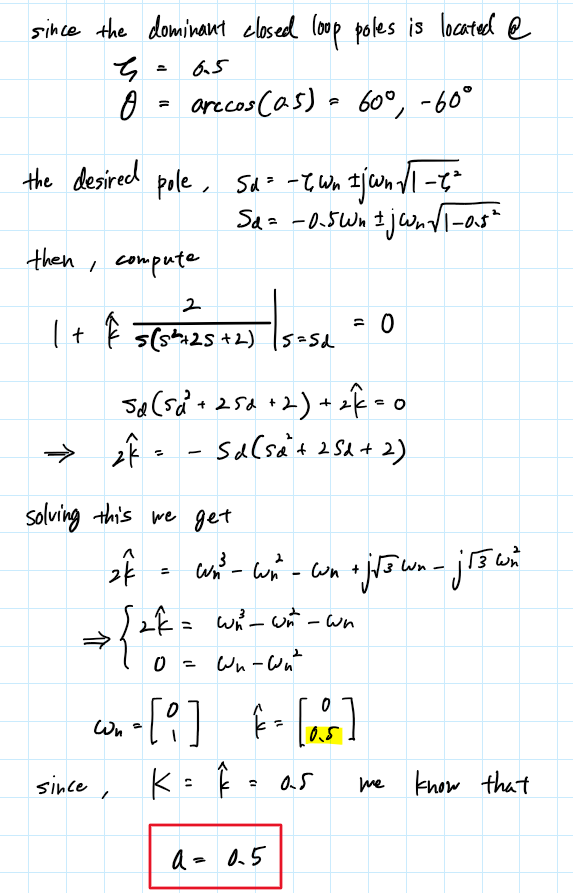 since the dominant closed loop poles is located @
ζ = 0.5
θ = arccos(0.5) = 60°, -60°
the desired pole, Sd = -ζωn ±jωn√(1-ζ²)
Sd = -0.5ωn ±jωn√(1-0.5²)
then, compute
1 + k̂ 2/(s(s²+2s+2)) |s=sd = 0
Sd(Sd² + 2Sd + 2) + 2k̂ = 0
⇒ 2k̂ = - Sd(Sd² + 2Sd + 2)
solving this we get
2k̂ = ωn³ - ωn² - ωn + j√3 ωn - j√3 ωn²
⇒ { 2k̂ = ωn³ - ωn² - ωn
0 = ωn - ωn²
ωn = [0 1] k̂ = [0 0.5]
since, K = k̂ = 0.5 we know that
a = 0.5